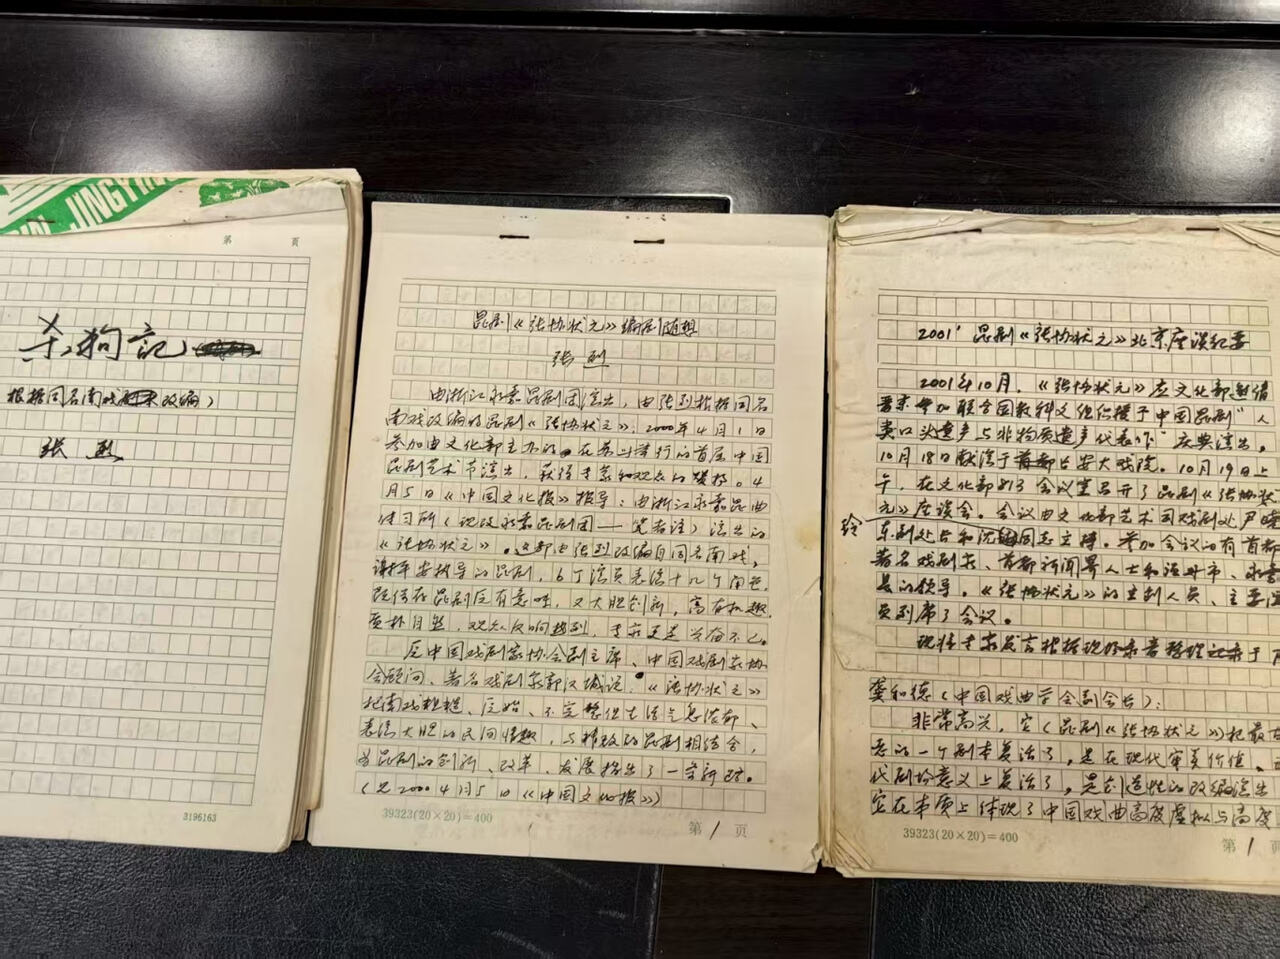 JINGYING
第 页
杀狗記
根据同名南戏 改编）
张烈
3196163
昆剧《张协状元》编剧随想
张烈
由浙江永嘉昆剧团演出，由张烈根据同名
南戏改编的昆剧《张协状元》，2000年4月1日
参加由文化部主办的 在苏州举行的首届中国
昆剧艺术节演出，获得专家和观众的 。4
月5日《中国文化报》报导：由浙江永嘉昆曲
传习所（现改永嘉昆剧团——笔者注）演出的
《张协状元》。这部由张烈改编自同名南戏，
谢平安执导的昆剧，6个演员表演十几个角色，
既传存昆剧原有意味，又大胆创新，富有机趣，
质朴自然，观众反响热烈，专家更是兴奋不已。
原中国戏剧家协会副主席、中国戏剧家协
会顾问、著名戏剧家郭汉城说：“《张协状元》
把南戏粗糙、原始、不完整但生活气息浓郁、
表演大胆的民间情趣，与精致的昆剧相结合，
为昆剧的创新、改革、发展指出了一条新路。
（见2000年4月5日《中国文化报》）
39323(20×20)=400
第1页
2001'昆剧《张协状元》北京座谈纪要
2001年10月，《张协状元》应文化部邀请
晋京参加联合国教科文组织授于中国昆剧“人
类口头遗产与非物质遗产代表作”庆典演出。
10月18日献演于 长安大戏院。10月19日上
午，在文化部813会议室召开了昆剧《张协状
元》座谈会。会议由文化部艺术司戏剧处尹晓
玲
东副处长和沈 同志主持。参加会议的有首都
著名戏剧家、首都新闻界人士和温州市、永嘉
县的领导。《张协状元》的主创人员、主要演
员列席了会议。
现将专家发言根据现场录音整理记录于下
龚和德（中国戏曲学会副会长）：
非常高兴，它（昆剧《张协状元》）把最古
老的一个剧本复活了，是在现代审美价值、
代剧场意义上复活了，是创造性的改编演出
它在本质上体现了中国戏曲高度虚拟与高度
39323(20×20)=400
第1页